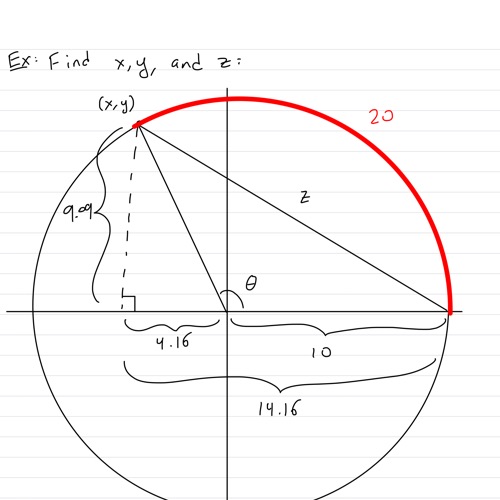 Ex: Find x, y, and z:
(x,y)
20
z
9.09
θ
4.16
10
14.16